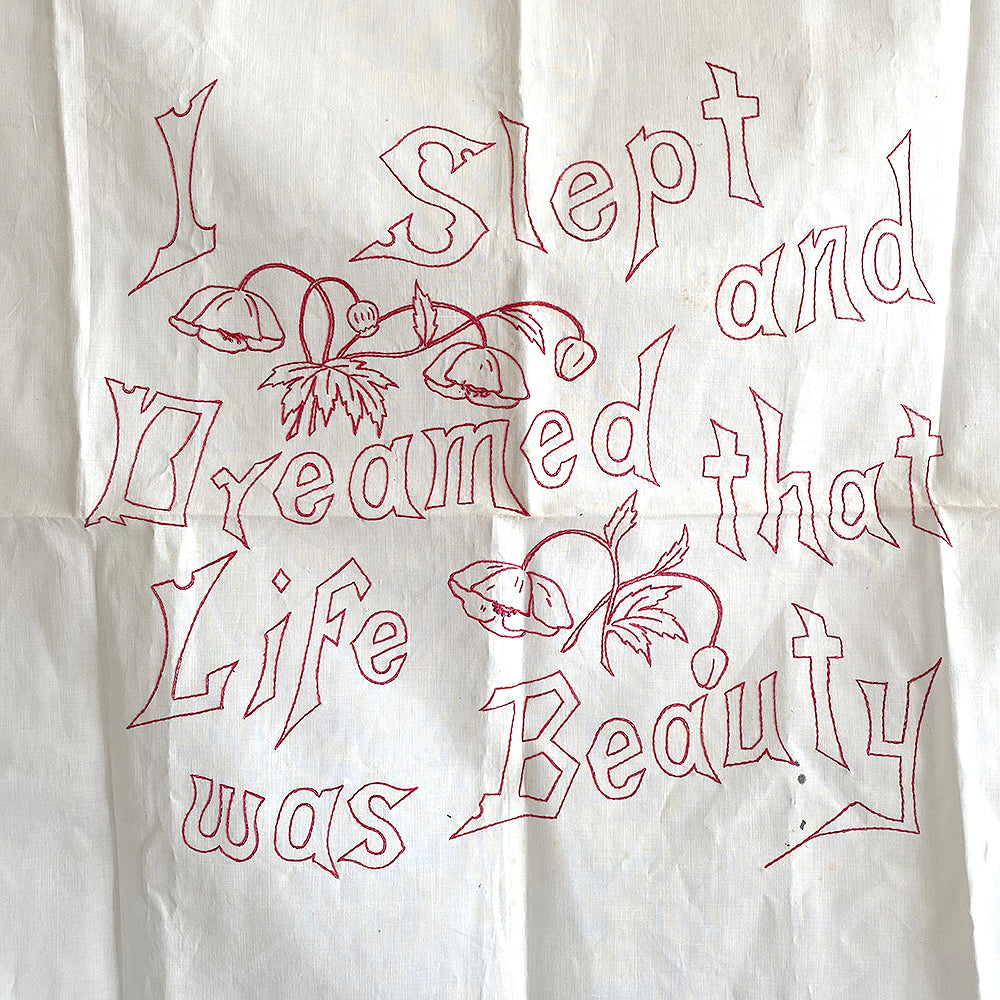 I Slept and
Dreamed that
Life
was Beauty